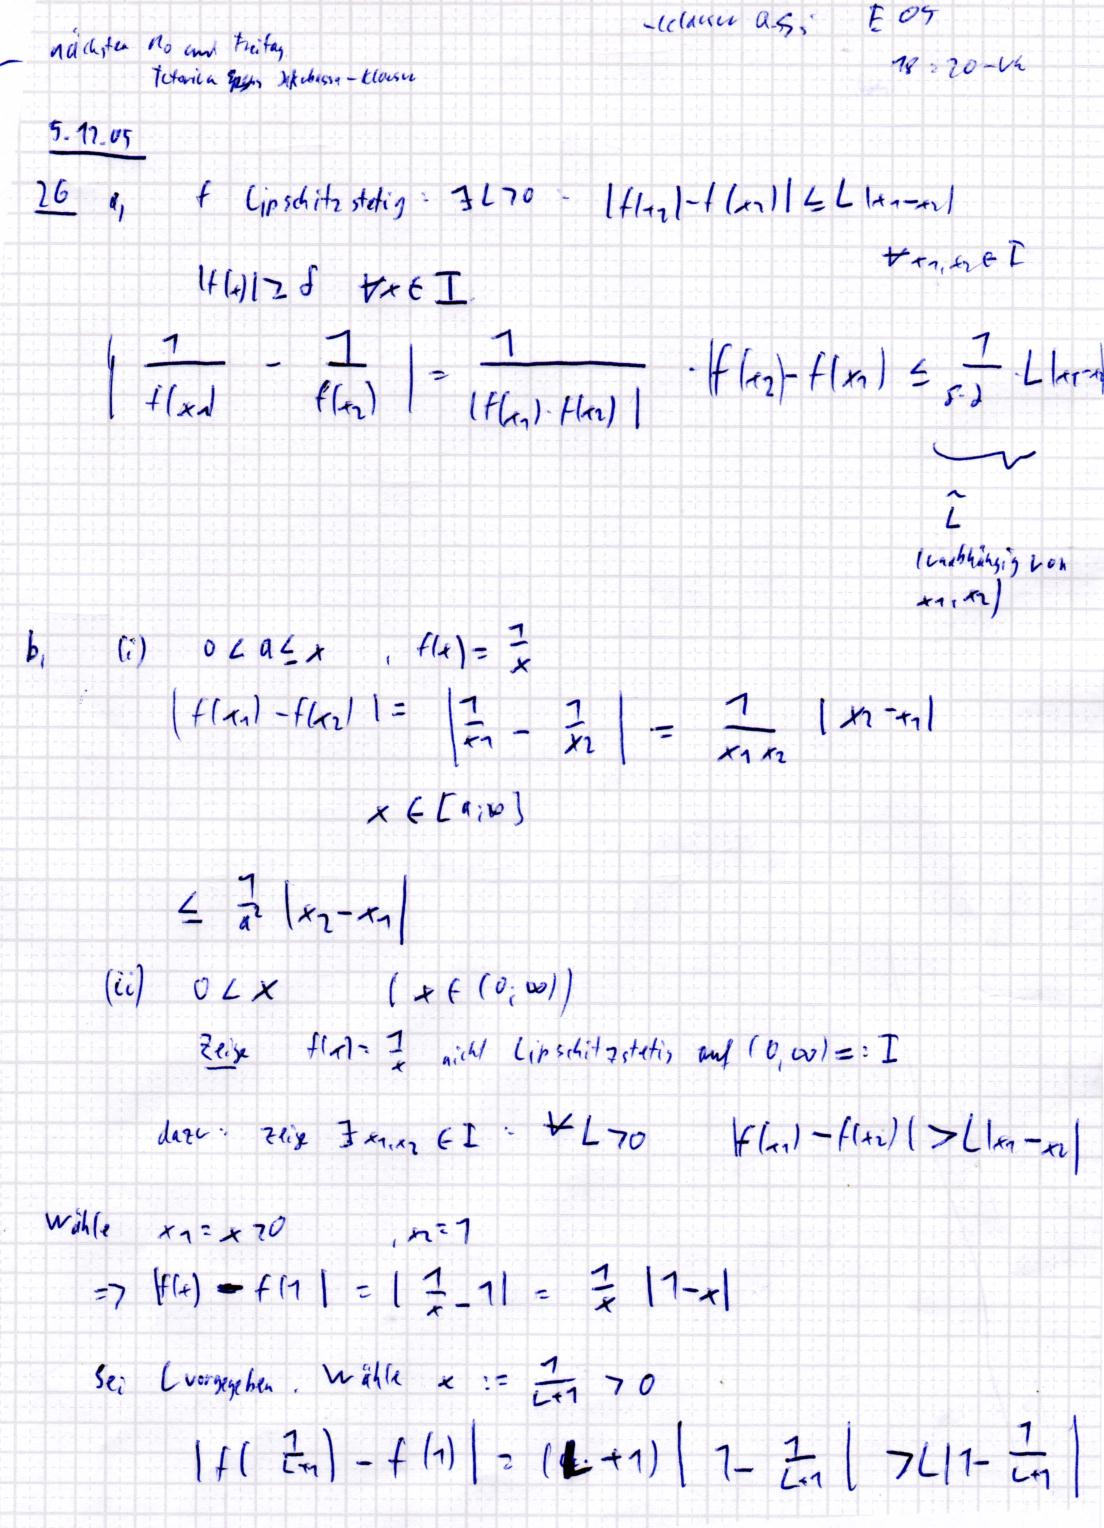 -klausur E 05
nächsten Mo und Freitag
18:20-Uh
-Klausur
5.12.05
26 a, f Lipschitzstetig: ∃L>0 - |f(x2)-f(x1)|≤L|x1-x2|
∀x1,x2∈I
|f(x)|≥δ ∀x∈I
|1/f(x1) - 1/f(x2)| = 1/|f(x1)·f(x2)| ·|f(x2)-f(x1)| ≤ 1/δ·δ ·L|x1-x2|
L̃
(unabhängig von
x1,x2)
b, (i) 0<a≤x , f(x)=1/x
|f(x1)-f(x2)|= |1/x1 - 1/x2| = 1/x1x2 |x2-x1|
x∈[a;∞]
≤ 1/a² |x2-x1|
(ii) 0<x (x∈(0;∞))
Zeige f(x)=1/x nicht Lipschitzstetig auf (0,∞)=:I
dazu: zeige ∃x1,x2∈I: ∀L>0 |f(x1)-f(x2)|>L|x1-x2|
Wähle x1=x>0 ,x2=1
=> |f(x)-f(1)| = |1/x-1| = 1/x |1-x|
Sei L vorgegeben. Wähle x := 1/L+1 >0
|f(1/L+1)-f(1)| = (L+1)|1-1/L+1| >L|1-1/L+1|